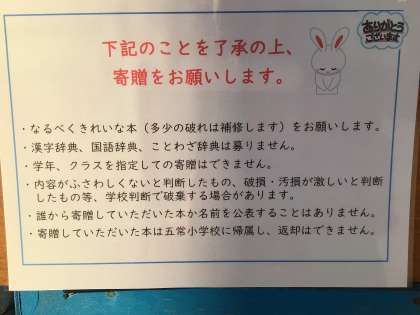 ありがとう
ございます
下記のことを了承の上、
寄贈をお願いします。
・なるべくきれいな本（多少の破れは補修します）をお願いします。
・漢字辞典、国語辞典、ことわざ辞典は募りません。
・学年、クラスを指定しての寄贈はできません。
・内容がふさわしくないと判断したもの、破損・汚損が激しいと判断
したもの等、学校判断で破棄する場合があります。
・誰から寄贈していただいた本か名前を公表することはありません。
・寄贈していただいた本は五常小学校に帰属し、返却はできません。